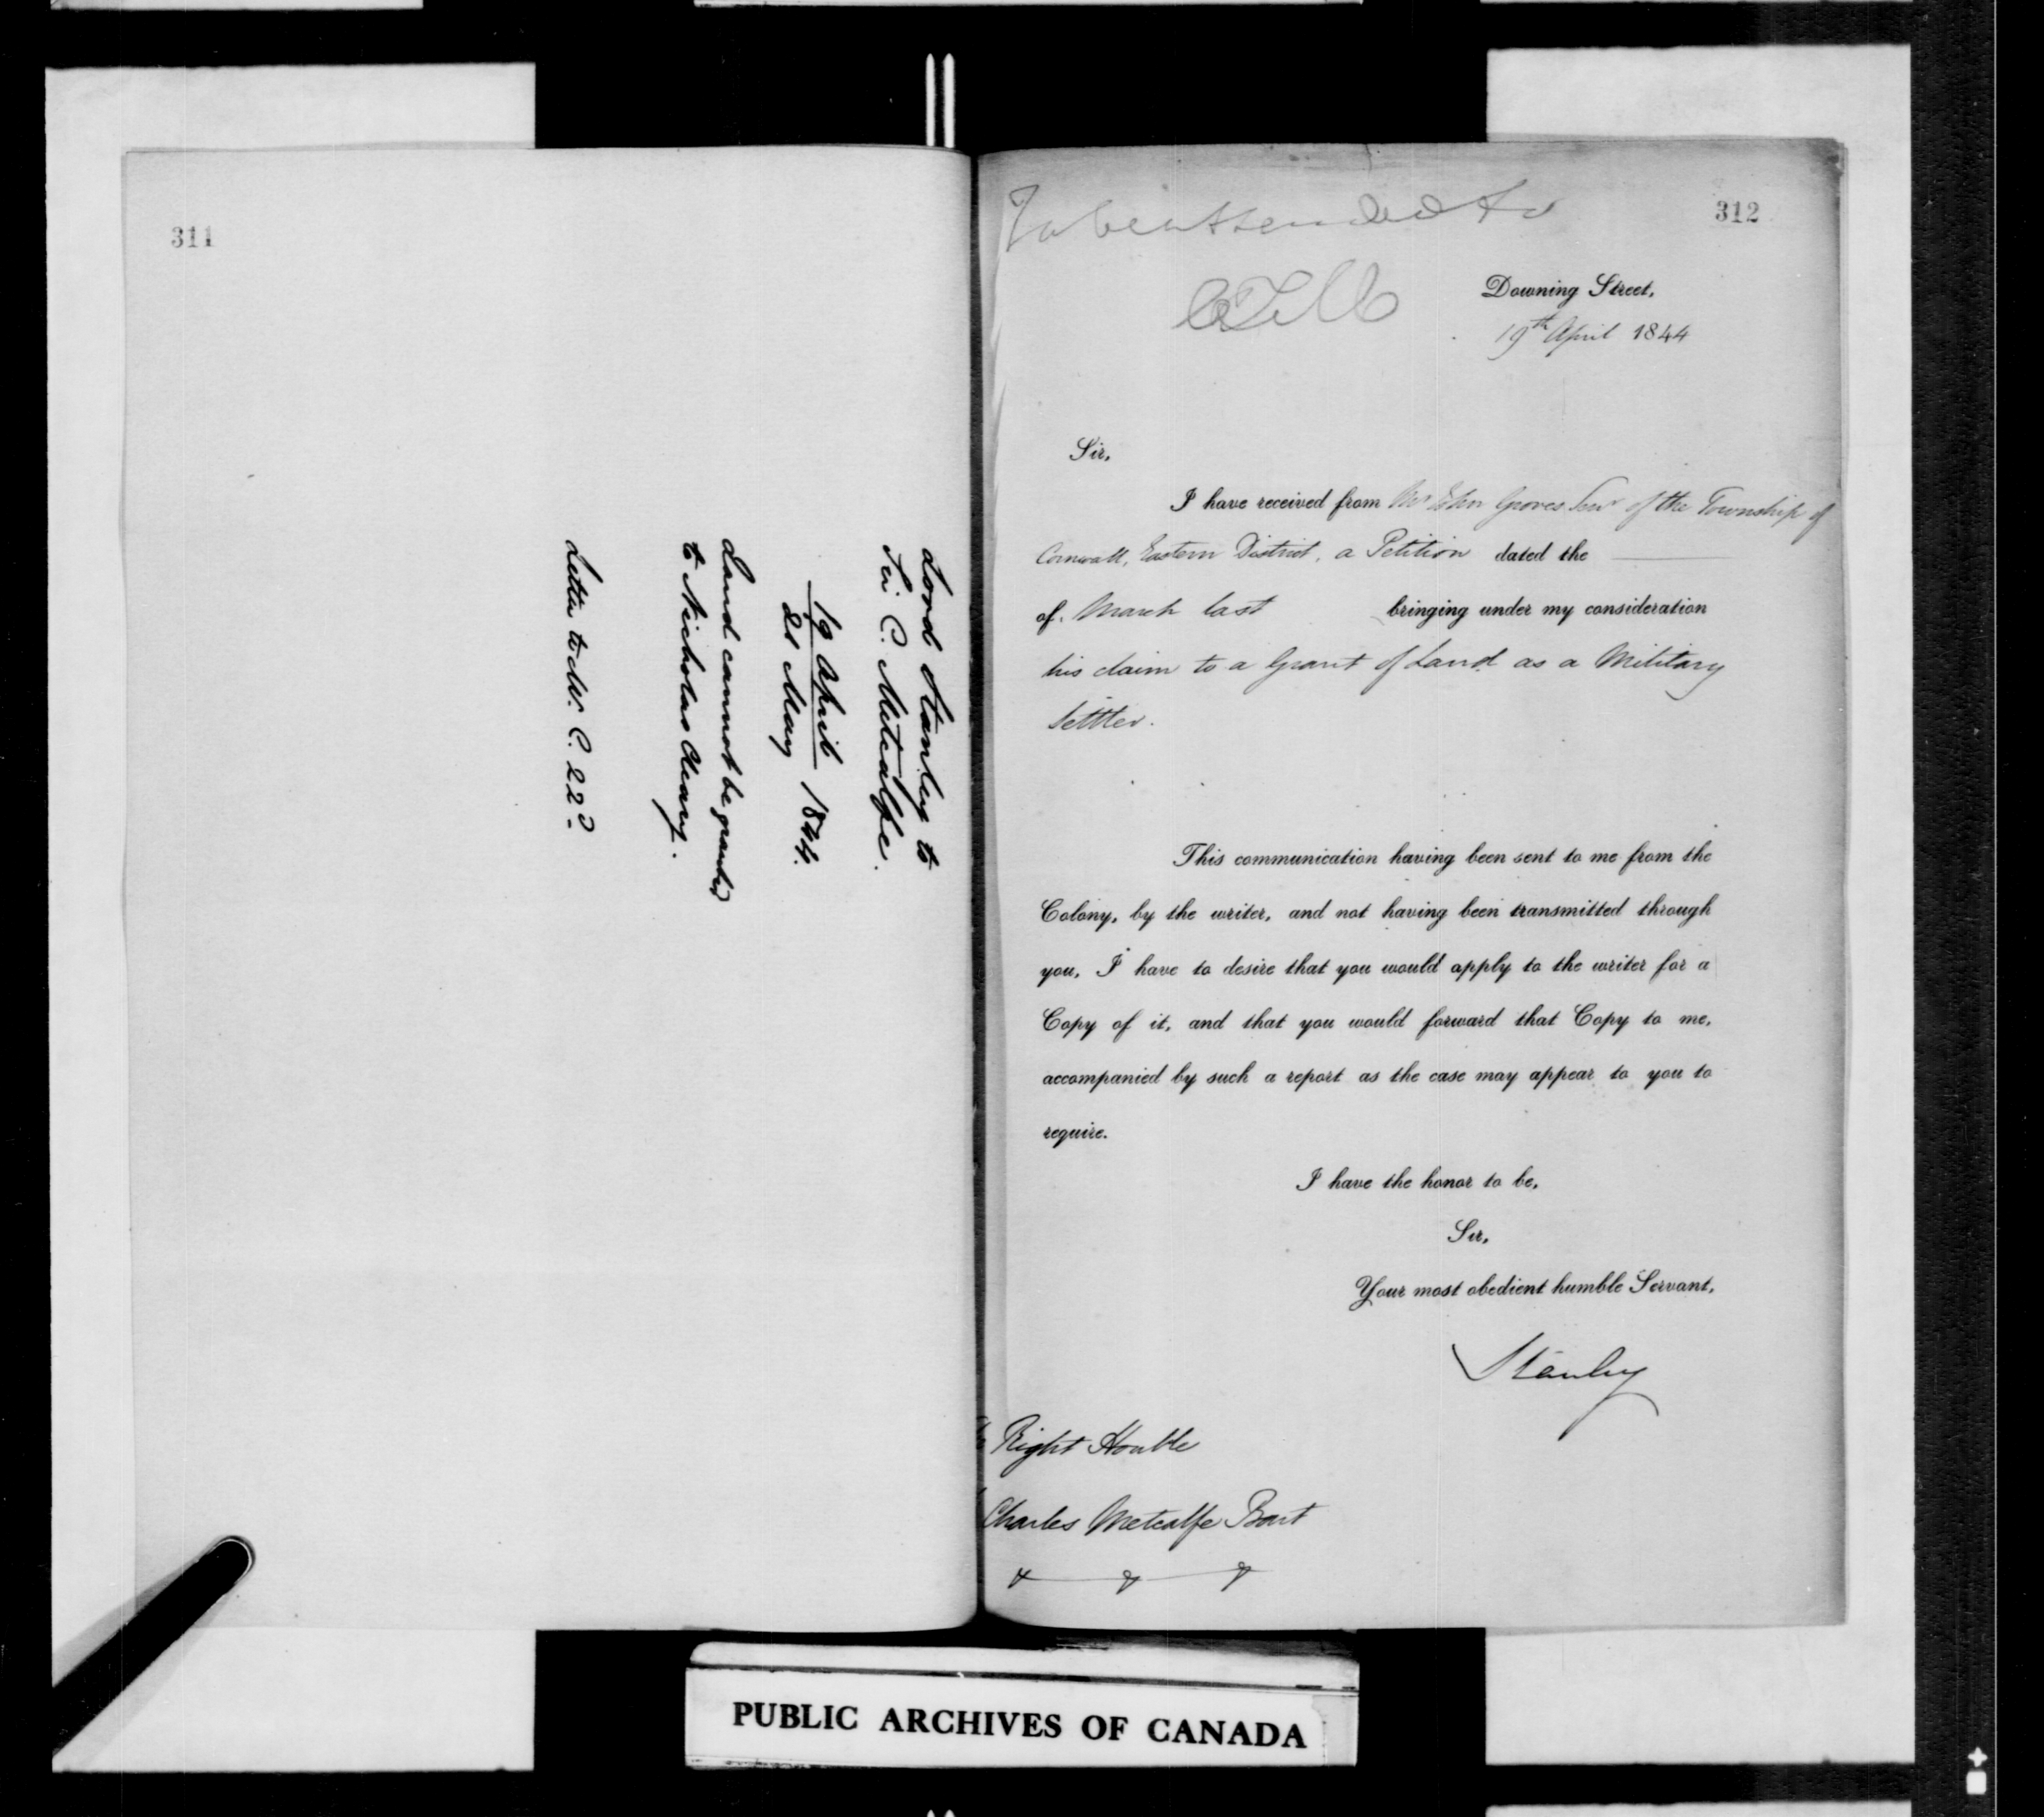 311
Lord Stanley to
Sir C. Metcalfe.
19 April 1844.
21 May
Land cannot be granted
to Nicholas Cleary.
Letter to Mr. C. 22d
312
To be attended to
Downing Street,
19th April 1844
Sir,
I have received from Mr John Groves Senr of the Township of
Cornwall, Eastern District, a Petition dated the
of March last bringing under my consideration
his claim to a Grant of Land as a Military
Settler.
This communication having been sent to me from the
Colony, by the writer, and not having been transmitted through
you, I have to desire that you would apply to the writer for a
Copy of it, and that you would forward that Copy to me,
accompanied by such a report as the case may appear to you to
require.
I have the honor to be,
Sir,
Your most obedient humble Servant,
Stanley
Right Honble
Charles Metcalfe Bart
& & &
PUBLIC ARCHIVES OF CANADA